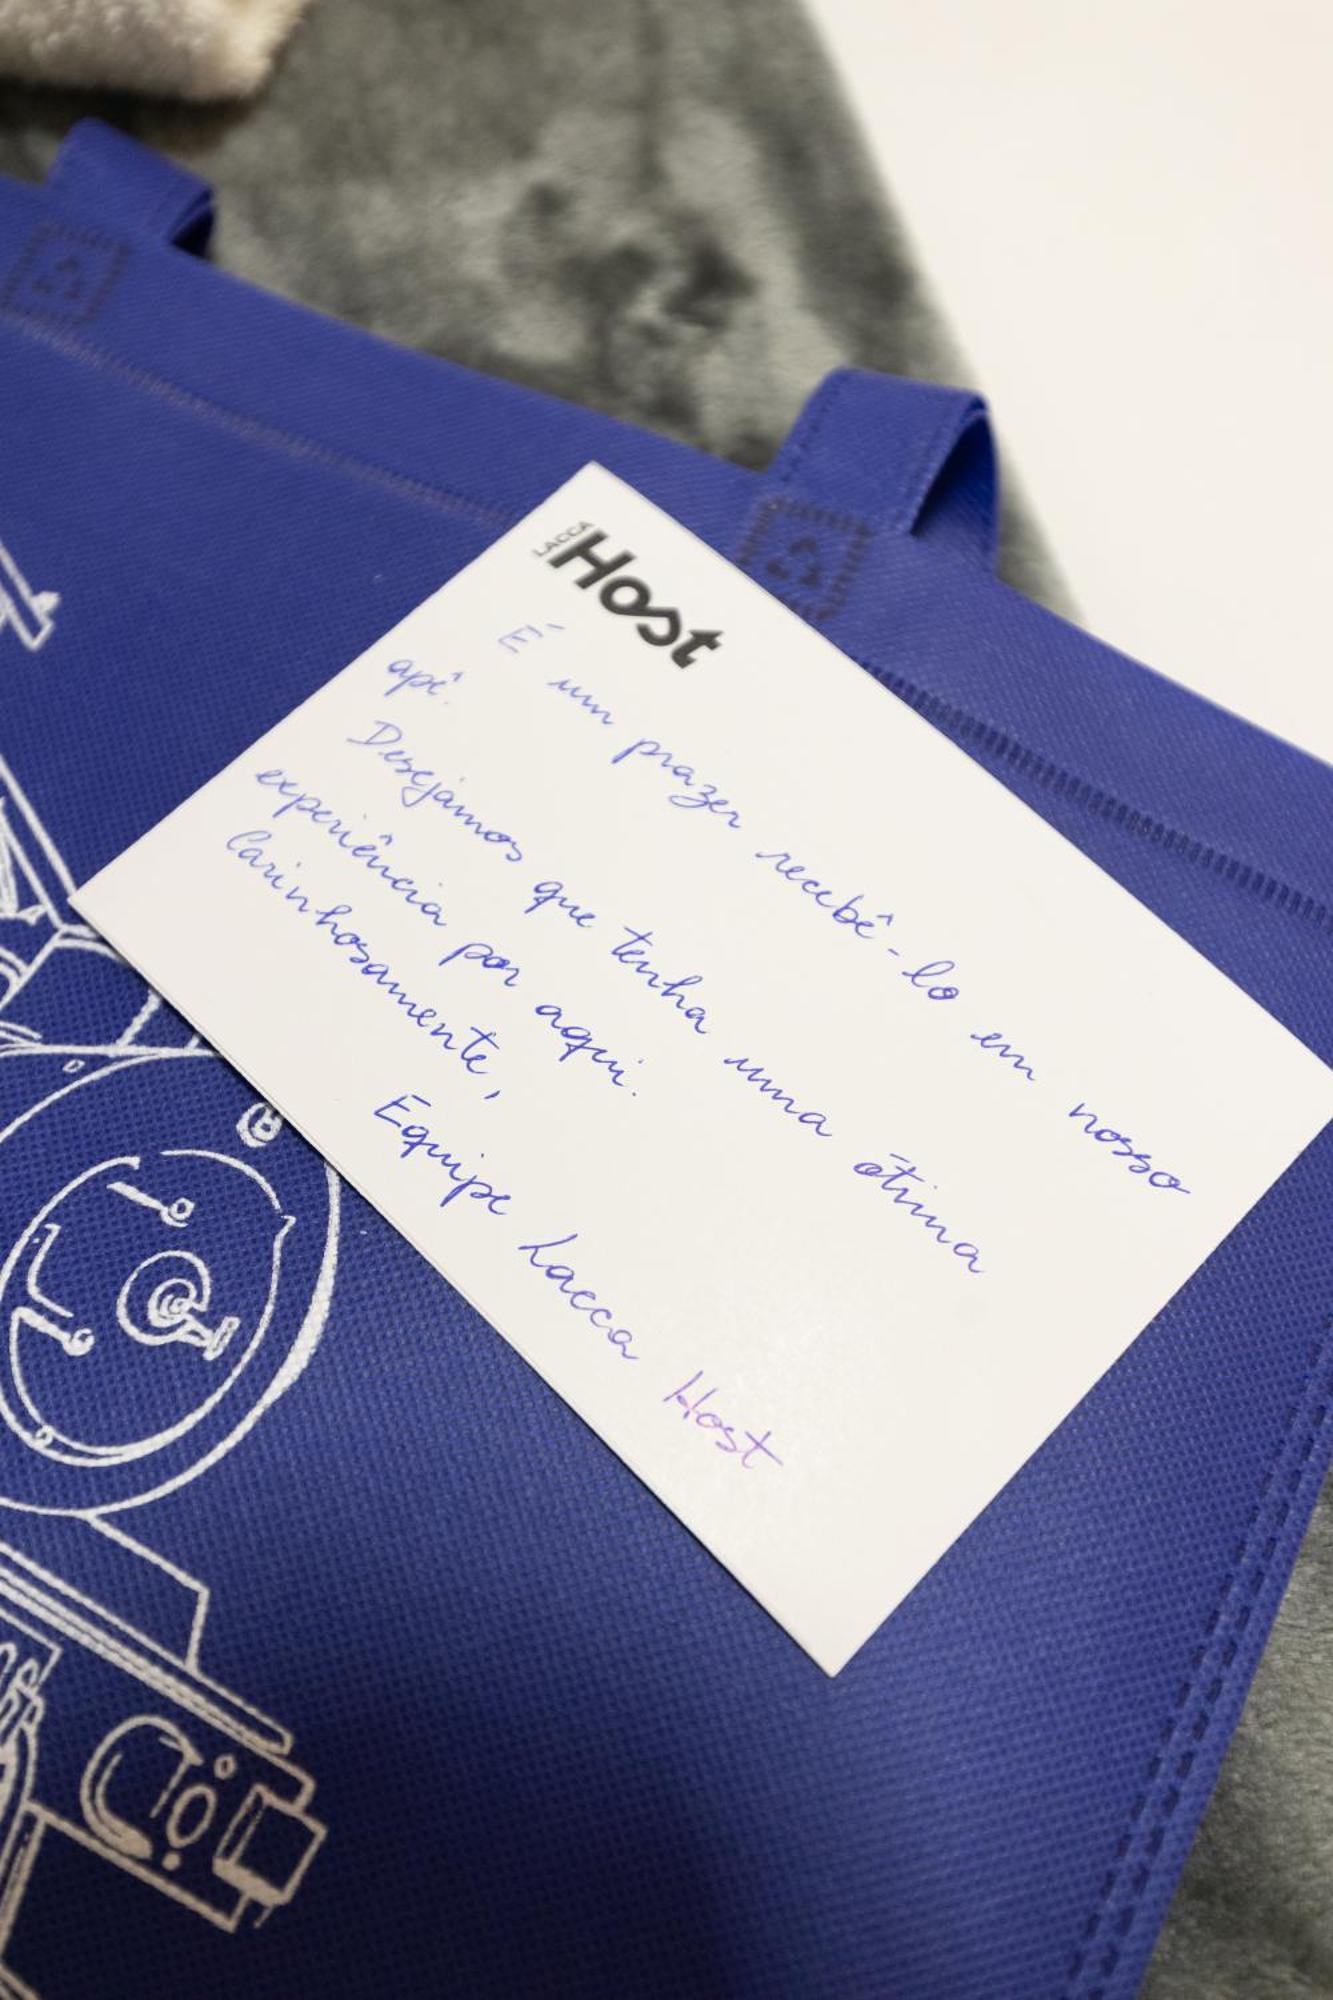 LACCA
Host
É um prazer recebê-lo em nosso
apê.
Desejamos que tenha uma ótima
experiência por aqui.
Carinhosamente,
Equipe Lacca Host